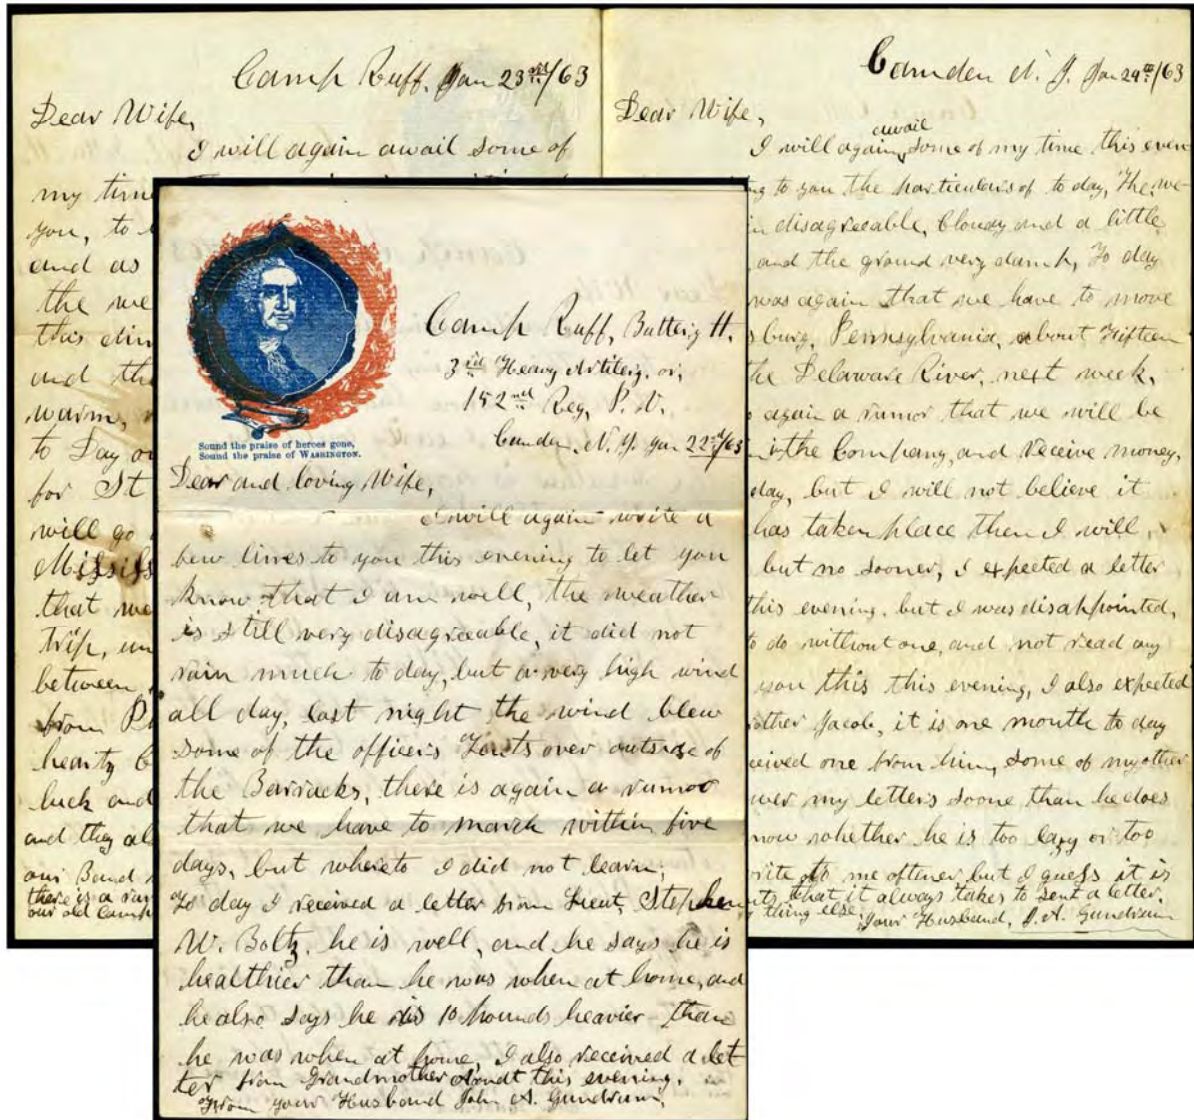 Camp Ruff, Jan 23rd/63
Dear Wife,
I will again avail some of
my time
you, to
and as
the we
this
and the
warm,
to Day
for St
will go
Missis
that we
trip, un
between
from
hearty
luck and
and they al
our Band
there is a
our old camp
Camden N. J. Jan 29th/63
Dear Wife,
avail
I will again some of my time this even
to you the particulars of to day, The we
disagreeable, Cloudy and a little
and the ground very damp, To day
was again that we have to move
burg, Pennsylvania, about Fifteen
the Delaware River, next week,
again a rumor that we will be
in the Company, and Receive money,
day, but I will not believe it
has taken place then I will,
but no sooner, I expected a letter
this evening, but I was disappointed,
to do without one, and not read any
you this this evening, I also expected
other Jacob, it is one month to day
ceived one from him, some of my other
my letters soone than he does
now whether he is too lazy or too
rite to me oftner but I guess it is
that it always takes to sent a letter.
thing else, Your Husband, J. A. Gundrum
Sound the praise of heroes gone,
Sound the praise of WASHINGTON.
Camp Ruff, Battery H.
3rd Heavy Artilery, or,
152nd Reg, P. V.
Camden, N. J. Jan 22nd/63
Dear and loving Wife,
I will again write a
few lines to you this evening to let you
know that I am well, the weather
is still very disagreeable, it did not
rain much to day, but a very high wind
all day, last night the wind blew
some of the officers Tents over outside of
the Barracks, there is again a rumor
that we have to march within five
days, but whereto I did not learn,
To day I received a letter from Lieut, Stephen
W. Boltz, he is well, and he says he is
healthier than he was when at home, and
he also says he is 10 pounds heavier than
he was when at home, I also received a let
ter from Grandmother Arndt this evening.
From your Husband John A. Gundrum,